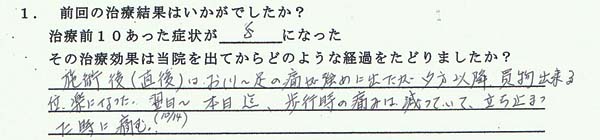 1. 前回の治療結果はいかがでしたか？
治療前10あった症状が 8 になった
その治療効果は当院を出てからどのような経過をたどりましたか？
施術後(直後)は、お尻～足の痛みは強めに出たが夕方以降買物出来る
位、楽になった。翌日～本日迄、歩行時の痛みは減っていて、立ち止まっ
た時に痛む。(10/14)